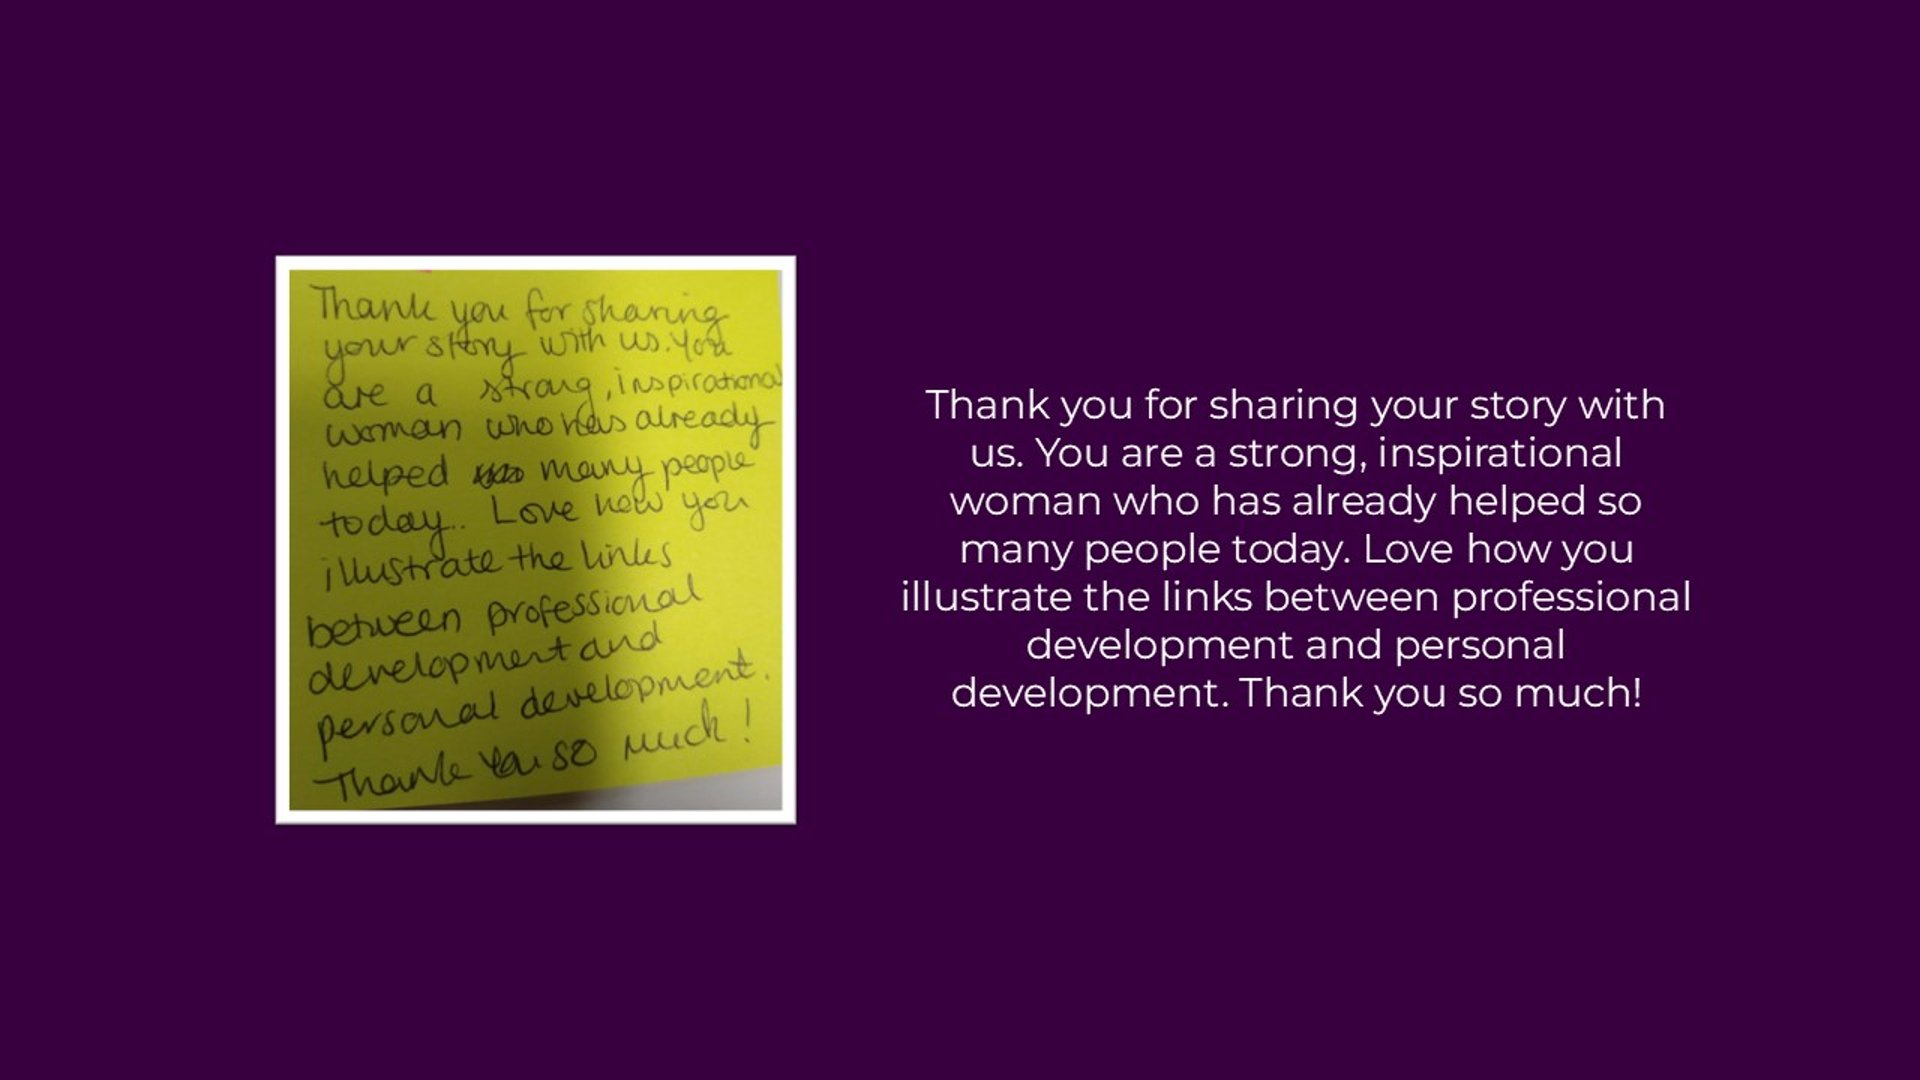 Thank you for sharing
your story with us. You
are a strong, inspirational
woman who has already
helped many people
today.. Love how you
illustrate the links
between professional
development and
personal development.
Thank you so much!
Thank you for sharing your story with
us. You are a strong, inspirational
woman who has already helped so
many people today. Love how you
illustrate the links between professional
development and personal
development. Thank you so much!